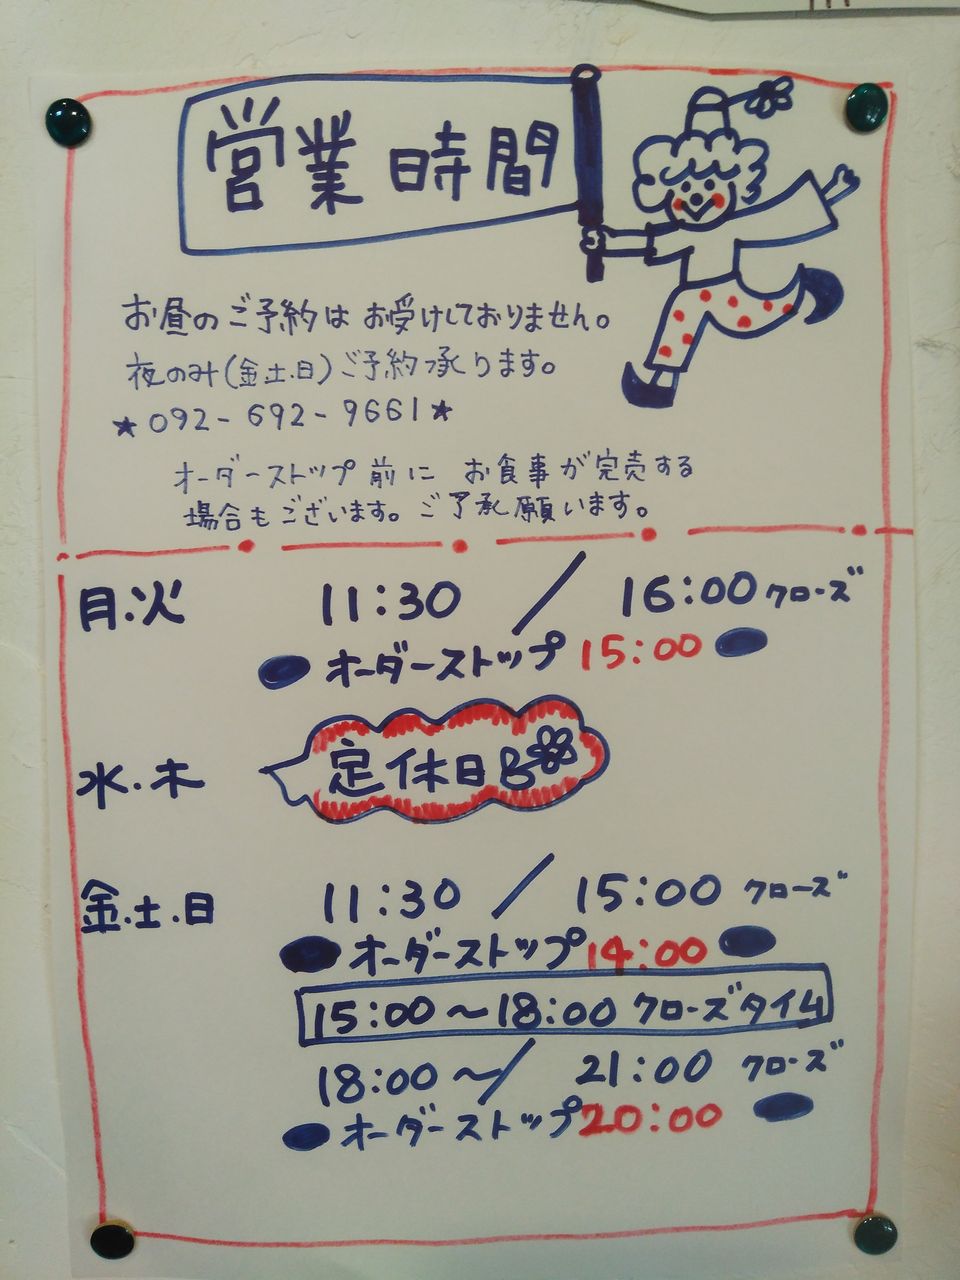 営業時間
お昼のご予約はお受けしておりません。
夜のみ(金.土.日)ご予約承ります。
★092-692-9661★
オーダーストップ前に お食事が完売する
場合もございます。ご了承願います。
月.火 11:30 / 16:00 クローズ
オーダーストップ 15:00
水.木 定休日
金.土.日 11:30 / 15:00 クローズ
オーダーストップ 14:00
15:00〜18:00 クローズタイム
18:00〜/ 21:00 クローズ
オーダーストップ 20:00